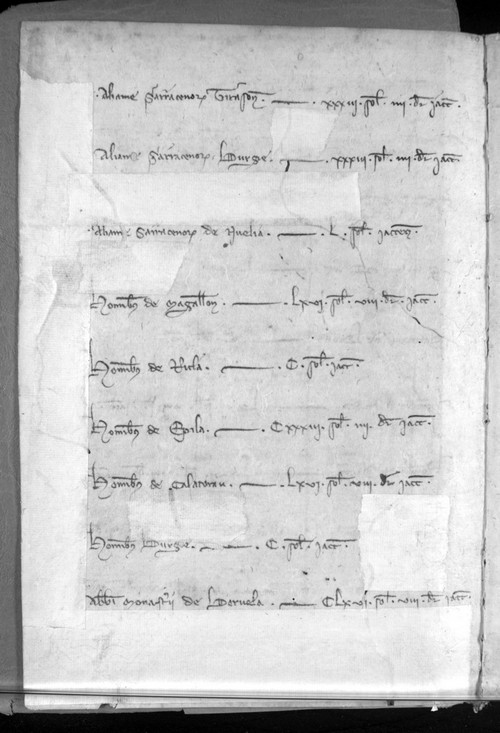 Aliame Sarracenorum Tirason. — xxxiii. sol. iiii. dr. iacc.
Aliame Sarracenor. Burge. — xxxiii. sol. iiii. dr. iacc.
Aliame Sarracenor. de — L. sol. iaccen.
Hominib de Magallon — Lxvi. sol. viii. dr. iacc.
Hominib de Ricla. — C. sol. iacc.
Hominib de Epila. — Cxxxiii. sol. iiii. dr. iacc.
Hominib de Calatorau. — Lxvi. sol. viii. dr. iacc.
Hominib Burgie. — C. sol. iacc.
Abbi monastii de Beruela. — CLxvi. sol. viii. dr. iacc.